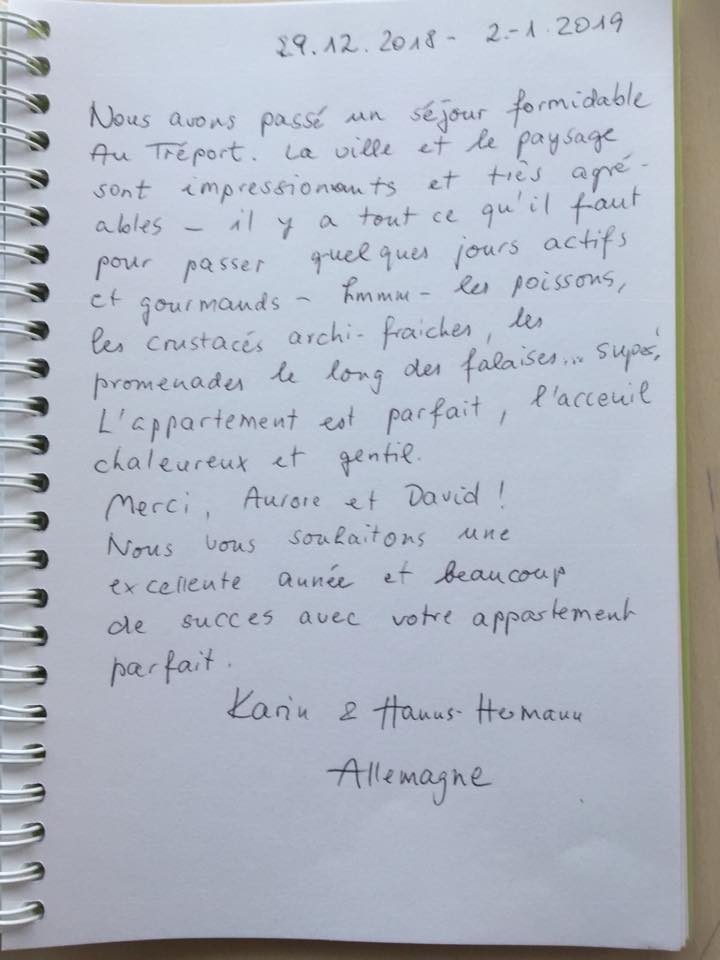 29.12.2018 - 2.-1.2019
Nous avons passé un séjour formidable
Au Tréport. La ville et le paysage
sont impressionants et très agré-
ables - il y a tout ce qu'il faut
pour passer quelques jours actifs
et gourmands - hmmm - les poissons,
les crustacés archi-fraiches, les
promenades le long des falaises... super,
L'appartement est parfait, l'acceuil
chaleureux et gentil.
Merci, Aurore et David !
Nous vous souhaitons une
excellente année et beaucoup
de succes avec votre appartement
parfait.
Karin & Hanns-Hermann
Allemagne